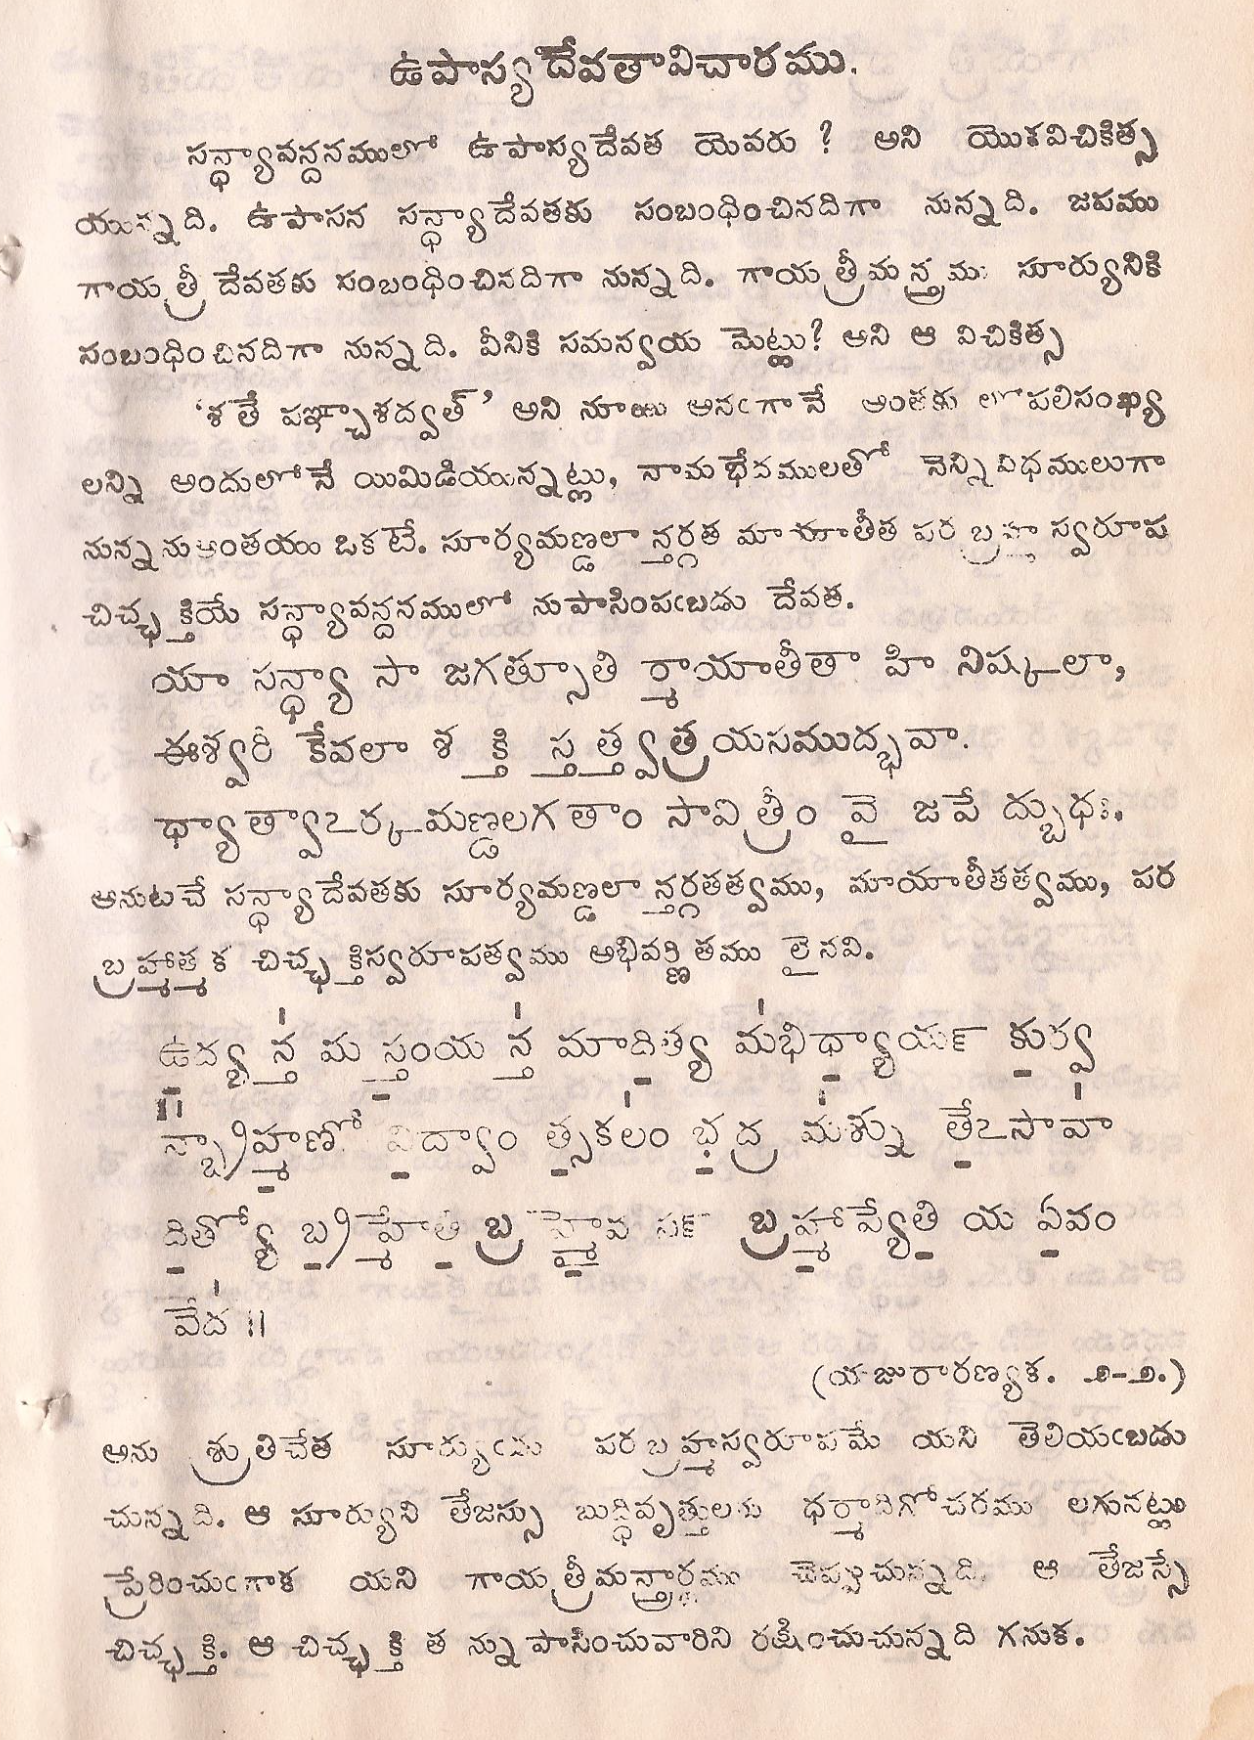 ఉపాస్యదేవతావిచారము.
సన్ధ్యావన్దనములో ఉపాస్యదేవత యెవరు ? అని యొకవిచికిత్స
యున్నది. ఉపాసన సన్ధ్యాదేవతకు సంబంధించినదిగా నున్నది. జపము
గాయత్రీ దేవతకు సంబంధించినదిగా నున్నది. గాయత్రీమన్త్రము సూర్యునికి
సంబంధించినదిగా నున్నది. వీనికి సమన్వయ మెట్లు? అని ఆ విచికిత్స
‘శతే పఞ్చాశద్వత్’ అని నూఱు అనఁగానే అంతకు లోపలిసంఖ్య
లన్ని అందులోనే యిమిడియున్నట్లు, నామభేదములతో నెన్నివిధములుగా
నున్నను అంతయు ఒకటే. సూర్యమణ్డలాన్తర్గత మాయాతీత పరబ్రహ్మ స్వరూప
చిచ్ఛక్తియే సన్ధ్యావన్దనములో నుపాసింపఁబడు దేవత.
యా సన్ధ్యా సా జగత్సూతి ర్మాయాతీతా హి నిష్కలా,
ఈశ్వరీ కేవలా శక్తి స్తత్త్వత్రయసముద్భవా.
ధ్యాత్వాఽర్కమణ్డలగతాం సావిత్రీం వై జపే ద్బుధః.
అనుటచే సన్ధ్యాదేవతకు సూర్యమణ్డలాన్తర్గతత్వము, మాయాతీతత్వము, పర
బ్రహ్మాత్మక చిచ్ఛక్తిస్వరూపత్వము అభివర్ణితము లైనవి.
ఉ॒ద్యన్త॑ మ స్తం॒య న్త॑ మాది॒త్య మ॑భిధ్యా॒యన్ కు॒ర్వ
న్బ్రా᳚హ్మ॒ణో వి॒ద్వాం త్స॒కలం॑ భ॒ద్ర మ॑శ్ను తే॒ఽసావా॑
ది॒త్యో బ్ర॒హ్మేతి॒ బ్రహ్మై॒వ సన్ బ్రహ్మా॒ప్యేతి॒ య ఏ॒వం
వేద॑ ॥
(యజురారణ్యక. ౨-౨.)
అను శ్రుతిచేత సూర్యుఁడు పరబ్రహ్మస్వరూపమే యని తెలియఁబడు
చున్నది. ఆ సూర్యుని తేజస్సు బుద్ధివృత్తులకు ధర్మాదిగోచరము లగునట్లు
ప్రేరించుఁగాక యని గాయత్రీమన్త్రార్థము చెప్పుచున్నది. ఆ తేజస్సే
చిచ్ఛక్తి. ఆ చిచ్ఛక్తి త న్నుపాసించువారిని రక్షించుచున్నది గనుక.